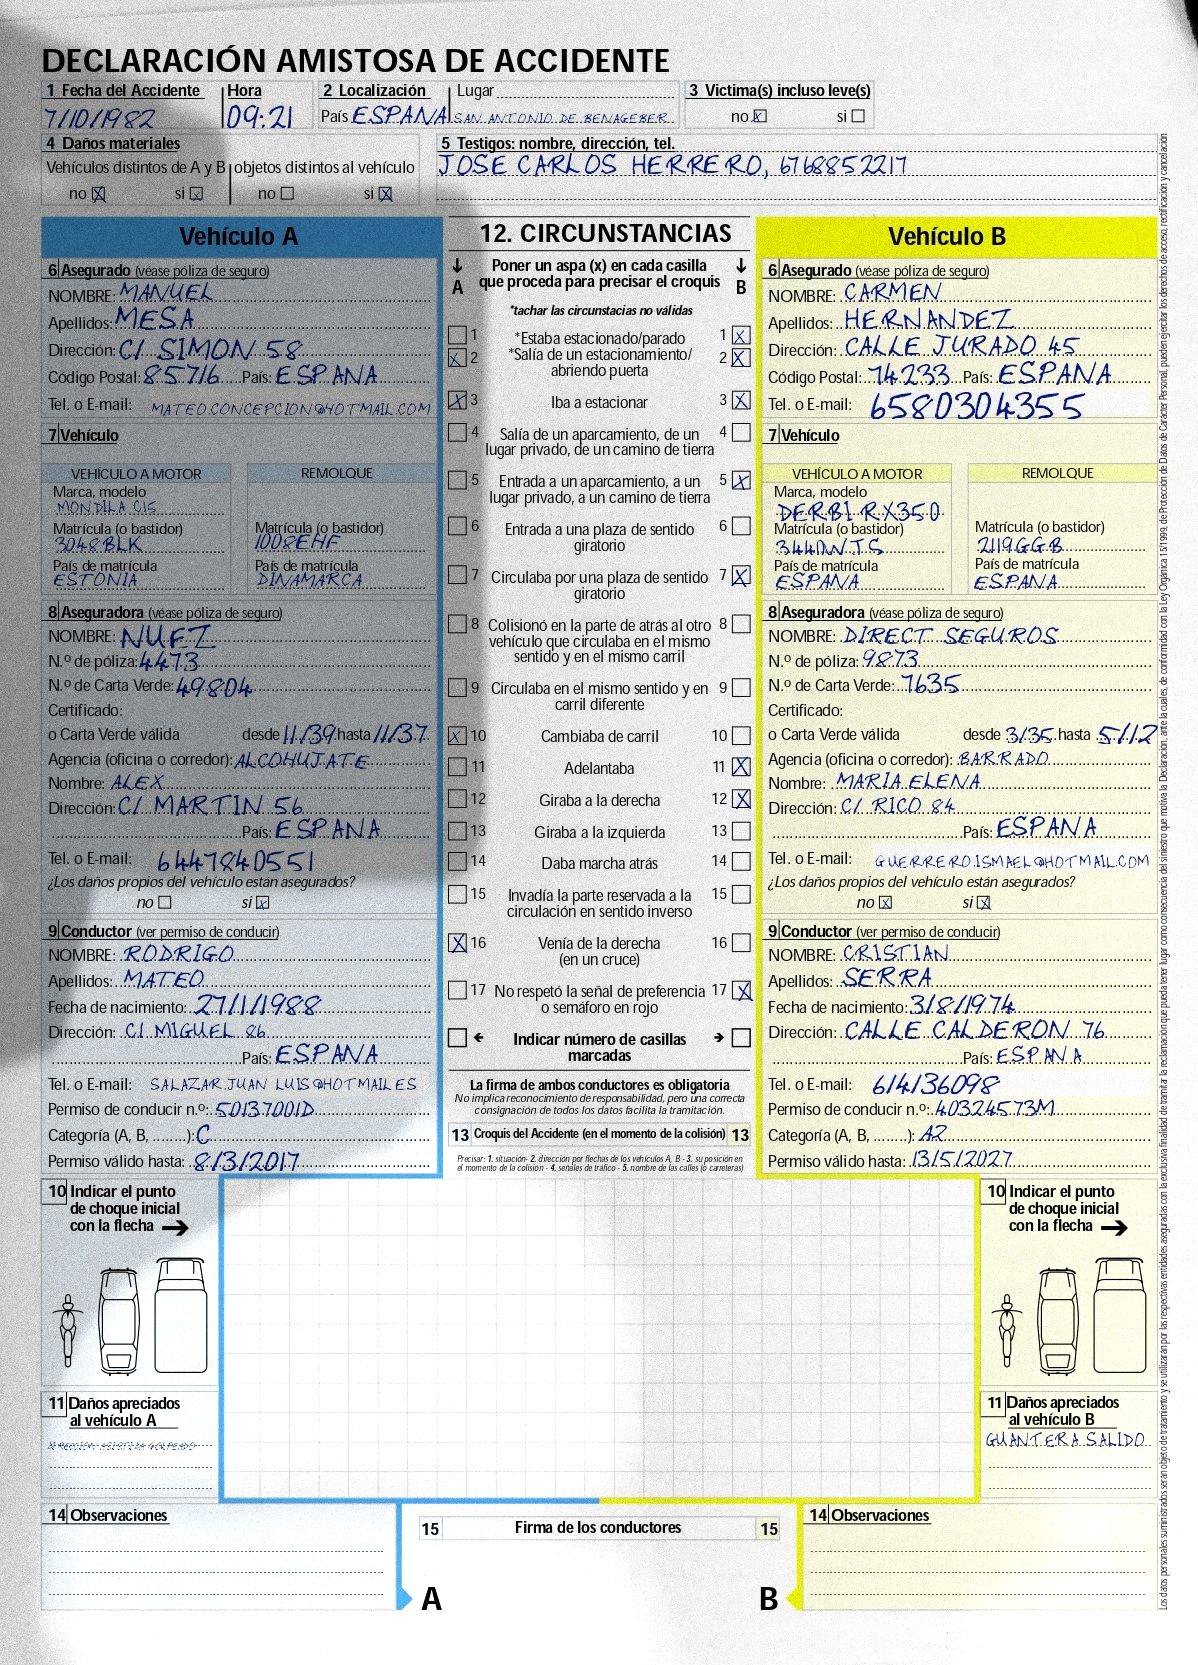 DECLARACIÓN AMISTOSA DE ACCIDENTE
1 Fecha del Accidente Hora 2 Localización Lugar 3 Victima(s) incluso leve(s)
7/10/1982 09:21 País ESPANA SAN ANTONIO DE BENAGEBER no X si
4 Daños materiales 5 Testigos: nombre, dirección, tel.
Vehículos distintos de A y B objetos distintos al vehículo JOSE CARLOS HERRERO, 6768852217
no X si X no si X
Vehículo A
6 Asegurado (véase póliza de seguro)
NOMBRE: MANUEL
Apellidos: MESA
Dirección: C/ SIMON 58
Código Postal: 85716 País: ESPANA
Tel. o E-mail: MATEO.CONCEPCION@HOTMAIL.COM
7 Vehículo
VEHÍCULO A MOTOR REMOLQUE
Marca, modelo
MONDILA C15
Matrícula (o bastidor) Matrícula (o bastidor)
3048BLK 1008EHF
País de matrícula País de matrícula
ESTONIA DINAMARCA
8 Aseguradora (véase póliza de seguro)
NOMBRE: NUEZ
N.º de póliza: 4473
N.º de Carta Verde: 49804
Certificado:
o Carta Verde válida desde 11/39 hasta 11/37
Agencia (oficina o corredor): ALCOHUJATE
Nombre: ALEX
Dirección: C/ MARTIN 56
País: ESPANA
Tel. o E-mail: 6447840551
¿Los daños propios del vehículo están asegurados?
no si X
9 Conductor (ver permiso de conducir)
NOMBRE: RODRIGO
Apellidos: MATEO
Fecha de nacimiento: 27/1/1988
Dirección: C/ MIGUEL 86
País: ESPANA
Tel. o E-mail: SALAZAR.JUAN LUIS@HOTMAIL.ES
Permiso de conducir n.º: 50137001D
Categoría (A, B, ........): C
Permiso válido hasta: 8/3/2017
12. CIRCUNSTANCIAS
Poner un aspa (x) en cada casilla
A que proceda para precisar el croquis B
*tachar las circunstacias no válidas
1 *Estaba estacionado/parado 1 X
X 2 *Salía de un estacionamiento/ 2 X
abriendo puerta
X 3 Iba a estacionar 3 X
4 Salía de un aparcamiento, de un 4
lugar privado, de un camino de tierra
5 Entrada a un aparcamiento, a un 5 X
lugar privado, a un camino de tierra
6 Entrada a una plaza de sentido 6
giratorio
7 Circulaba por una plaza de sentido 7 X
giratorio
8 Colisionó en la parte de atrás al otro 8
vehículo que circulaba en el mismo
sentido y en el mismo carril
9 Circulaba en el mismo sentido y en 9
carril diferente
X 10 Cambiaba de carril 10
11 Adelantaba 11 X
12 Giraba a la derecha 12 X
13 Giraba a la izquierda 13
14 Daba marcha atrás 14
15 Invadía la parte reservada a la 15
circulación en sentido inverso
X 16 Venía de la derecha 16
(en un cruce)
17 No respetó la señal de preferencia 17 X
o semáforo en rojo
Indicar número de casillas
marcadas
La firma de ambos conductores es obligatoria
No implica reconocimiento de responsabilidad, pero una correcta
consignación de todos los datos facilita la tramitación.
13 Croquis del Accidente (en el momento de la colisión) 13
Precisar: 1. situación- 2. dirección por flechas de los vehículos A, B - 3. su posición en
el momento de la colisión - 4. señales de tráfico - 5. nombre de las calles (o carreteras)
Vehículo B
6 Asegurado (véase póliza de seguro)
NOMBRE: CARMEN
Apellidos: HERNANDEZ
Dirección: CALLE JURADO 45
Código Postal: 74233 País: ESPANA
Tel. o E-mail: 6580304355
7 Vehículo
VEHÍCULO A MOTOR REMOLQUE
Marca, modelo
DERBI RX350
Matrícula (o bastidor) Matrícula (o bastidor)
3440WTS 2119GGB
País de matrícula País de matrícula
ESPANA ESPANA
8 Aseguradora (véase póliza de seguro)
NOMBRE: DIRECT SEGUROS
N.º de póliza: 9873
N.º de Carta Verde: 7635
Certificado:
o Carta Verde válida desde 3/35 hasta 5/12
Agencia (oficina o corredor): BARRADO
Nombre: MARIA ELENA
Dirección: C/ RICO 84
País: ESPANA
Tel. o E-mail: GUERRERO.ISMAEL@HOTMAIL.COM
¿Los daños propios del vehículo están asegurados?
no X si X
9 Conductor (ver permiso de conducir)
NOMBRE: CRISTIAN
Apellidos: SERRA
Fecha de nacimiento: 3/8/1974
Dirección: CALLE CALDERON 76
País: ESPANA
Tel. o E-mail: 614136098
Permiso de conducir n.º: 40324573M
Categoría (A, B, ........): A2
Permiso válido hasta: 13/5/2027
10 Indicar el punto
de choque inicial
con la flecha
11 Daños apreciados
al vehículo A
DIRECCION ASISTIDA GOLPEADO
10 Indicar el punto
de choque inicial
con la flecha
11 Daños apreciados
al vehículo B
GUANTERA SALIDO
14 Observaciones
15 Firma de los conductores 15
A B
14 Observaciones
Los datos personales suministrados seran objeto de tratamiento y se utilizaran por las respectivas entidades aseguradas con la exclusiva finalidad de tramitar la reclamación que pueda tener lugar como consecuencia del siniestro que motiva la Declaración, ante la cuales, de conformidad con la Ley Organica 15/1999, de Protección de Datos de Carácter Personal, pueden ejercitar los derechos de acceso, rectificación y cancelación